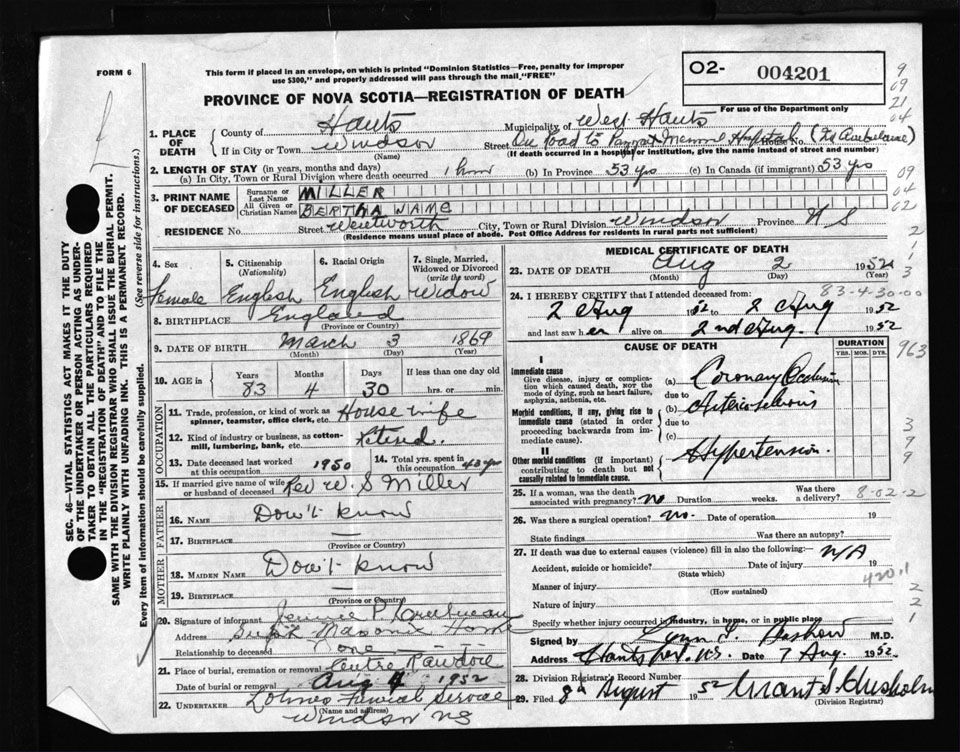 FORM 6
This form if placed in an envelope, on which is printed "Dominion Statistics—Free, penalty for improper
use $300," and properly addressed will pass through the mail "FREE"
PROVINCE OF NOVA SCOTIA—REGISTRATION OF DEATH
02- 004201
For use of the Department only
9
09
21
04
SEC. 46—VITAL STATISTICS ACT MAKES IT THE DUTY
OF THE UNDERTAKER OR PERSON ACTING AS UNDER-
TAKER TO OBTAIN ALL THE PARTICULARS REQUIRED
IN THE "REGISTRATION OF DEATH" AND TO FILE THE
SAME WITH THE DIVISION REGISTRAR WHO SHALL ISSUE THE BURIAL PERMIT.
WRITE PLAINLY WITH UNFADING INK. THIS IS A PERMANENT RECORD.
Every item of information should be carefully supplied. (See reverse side for instructions.)
1. PLACE OF DEATH
County of Hants Municipality of West Hants
If in City or Town Windsor Street On Road to Payzant Memorial Hospital House No. (In Ambulance)
(Name) (If death occurred in a hospital or institution, give the name instead of street and number)
2. LENGTH OF STAY (in years, months and days)
(a) In City, Town or Rural Division where death occurred 1 hour (b) In Province 53 yrs (c) In Canada (if immigrant) 53 yrs
09
04
02
3. PRINT NAME OF DECEASED
Surname or Last Name MILLER
All Given or Christian Names BERTHA
RESIDENCE No. Street Wentworth City, Town or Rural Division Windsor Province N S
(Residence means usual place of abode. Post Office Address for residents in rural parts not sufficient)
2
1
3
4. Sex 5. Citizenship (Nationality) 6. Racial Origin 7. Single, Married, Widowed or Divorced (write the word)
Female English English Widow
8. BIRTHPLACE England
(Province or Country)
9. DATE OF BIRTH March 3 1869
(Month) (Day) (Year)
10. AGE in Years Months Days If less than one day old
83 4 30 hrs. or min.
OCCUPATION
11. Trade, profession, or kind of work as spinner, teamster, office clerk, etc. House wife
12. Kind of industry or business, as cotton-mill, lumbering, bank, etc. Retired.
13. Date deceased last worked at this occupation 1950 14. Total yrs. spent in this occupation 43 yrs
15. If married give name of wife or husband of deceased Rev W. S Miller
FATHER
16. NAME Don't know
17. BIRTHPLACE —
(Province or Country)
MOTHER
18. MAIDEN NAME Don't know
19. BIRTHPLACE —
(Province or Country)
20. Signature of informant
Address Supt Masonic Home
Relationship to deceased none
21. Place of burial, cremation or removal Centre Rawdon
Date of burial or removal Aug 4 1952
22. UNDERTAKER Funeral Service
(Name and address)
Windsor NS
MEDICAL CERTIFICATE OF DEATH
23. DATE OF DEATH Aug 2 1952
(Month) (Day) (Year)
83-4-30-00
24. I HEREBY CERTIFY that I attended deceased from:
2 Aug 1952 to 2 Aug 1952
and last saw her alive on 2nd Aug. 1952
963
CAUSE OF DEATH DURATION
YRS. MOS. DYS.
I
Immediate cause
Give disease, injury or complication which caused death, NOT the mode of dying, such as heart failure, asphyxia, asthenia, etc.
(a) Coronary Occlusion
due to
Morbid conditions, if any, giving rise to immediate cause (stated in order proceeding backwards from immediate cause).
(b) Arterio-sclerosis
due to
(c)
II
Other morbid conditions (if important) contributing to death but not causally related to immediate cause.
Hypertension.
3
9
9
25. If a woman, was the death associated with pregnancy? no Duration weeks. Was there a delivery? 8-02-2
26. Was there a surgical operation? no. Date of operation 19
State findings Was there an autopsy?
27. If death was due to external causes (violence) fill in also the following:— N/A
Accident, suicide or homicide? Date of injury 19
(State which)
420.1
Manner of injury
(How sustained)
Nature of injury
Specify whether injury occurred in industry, in home, or in public place
2
2
1
Signed by M.D.
Address Hantsport, N.S. Date 7 Aug. 1952
28. Division Registrar's Record Number
29. Filed 8th August 1952 Grant S. Chisholm
(Division Registrar)